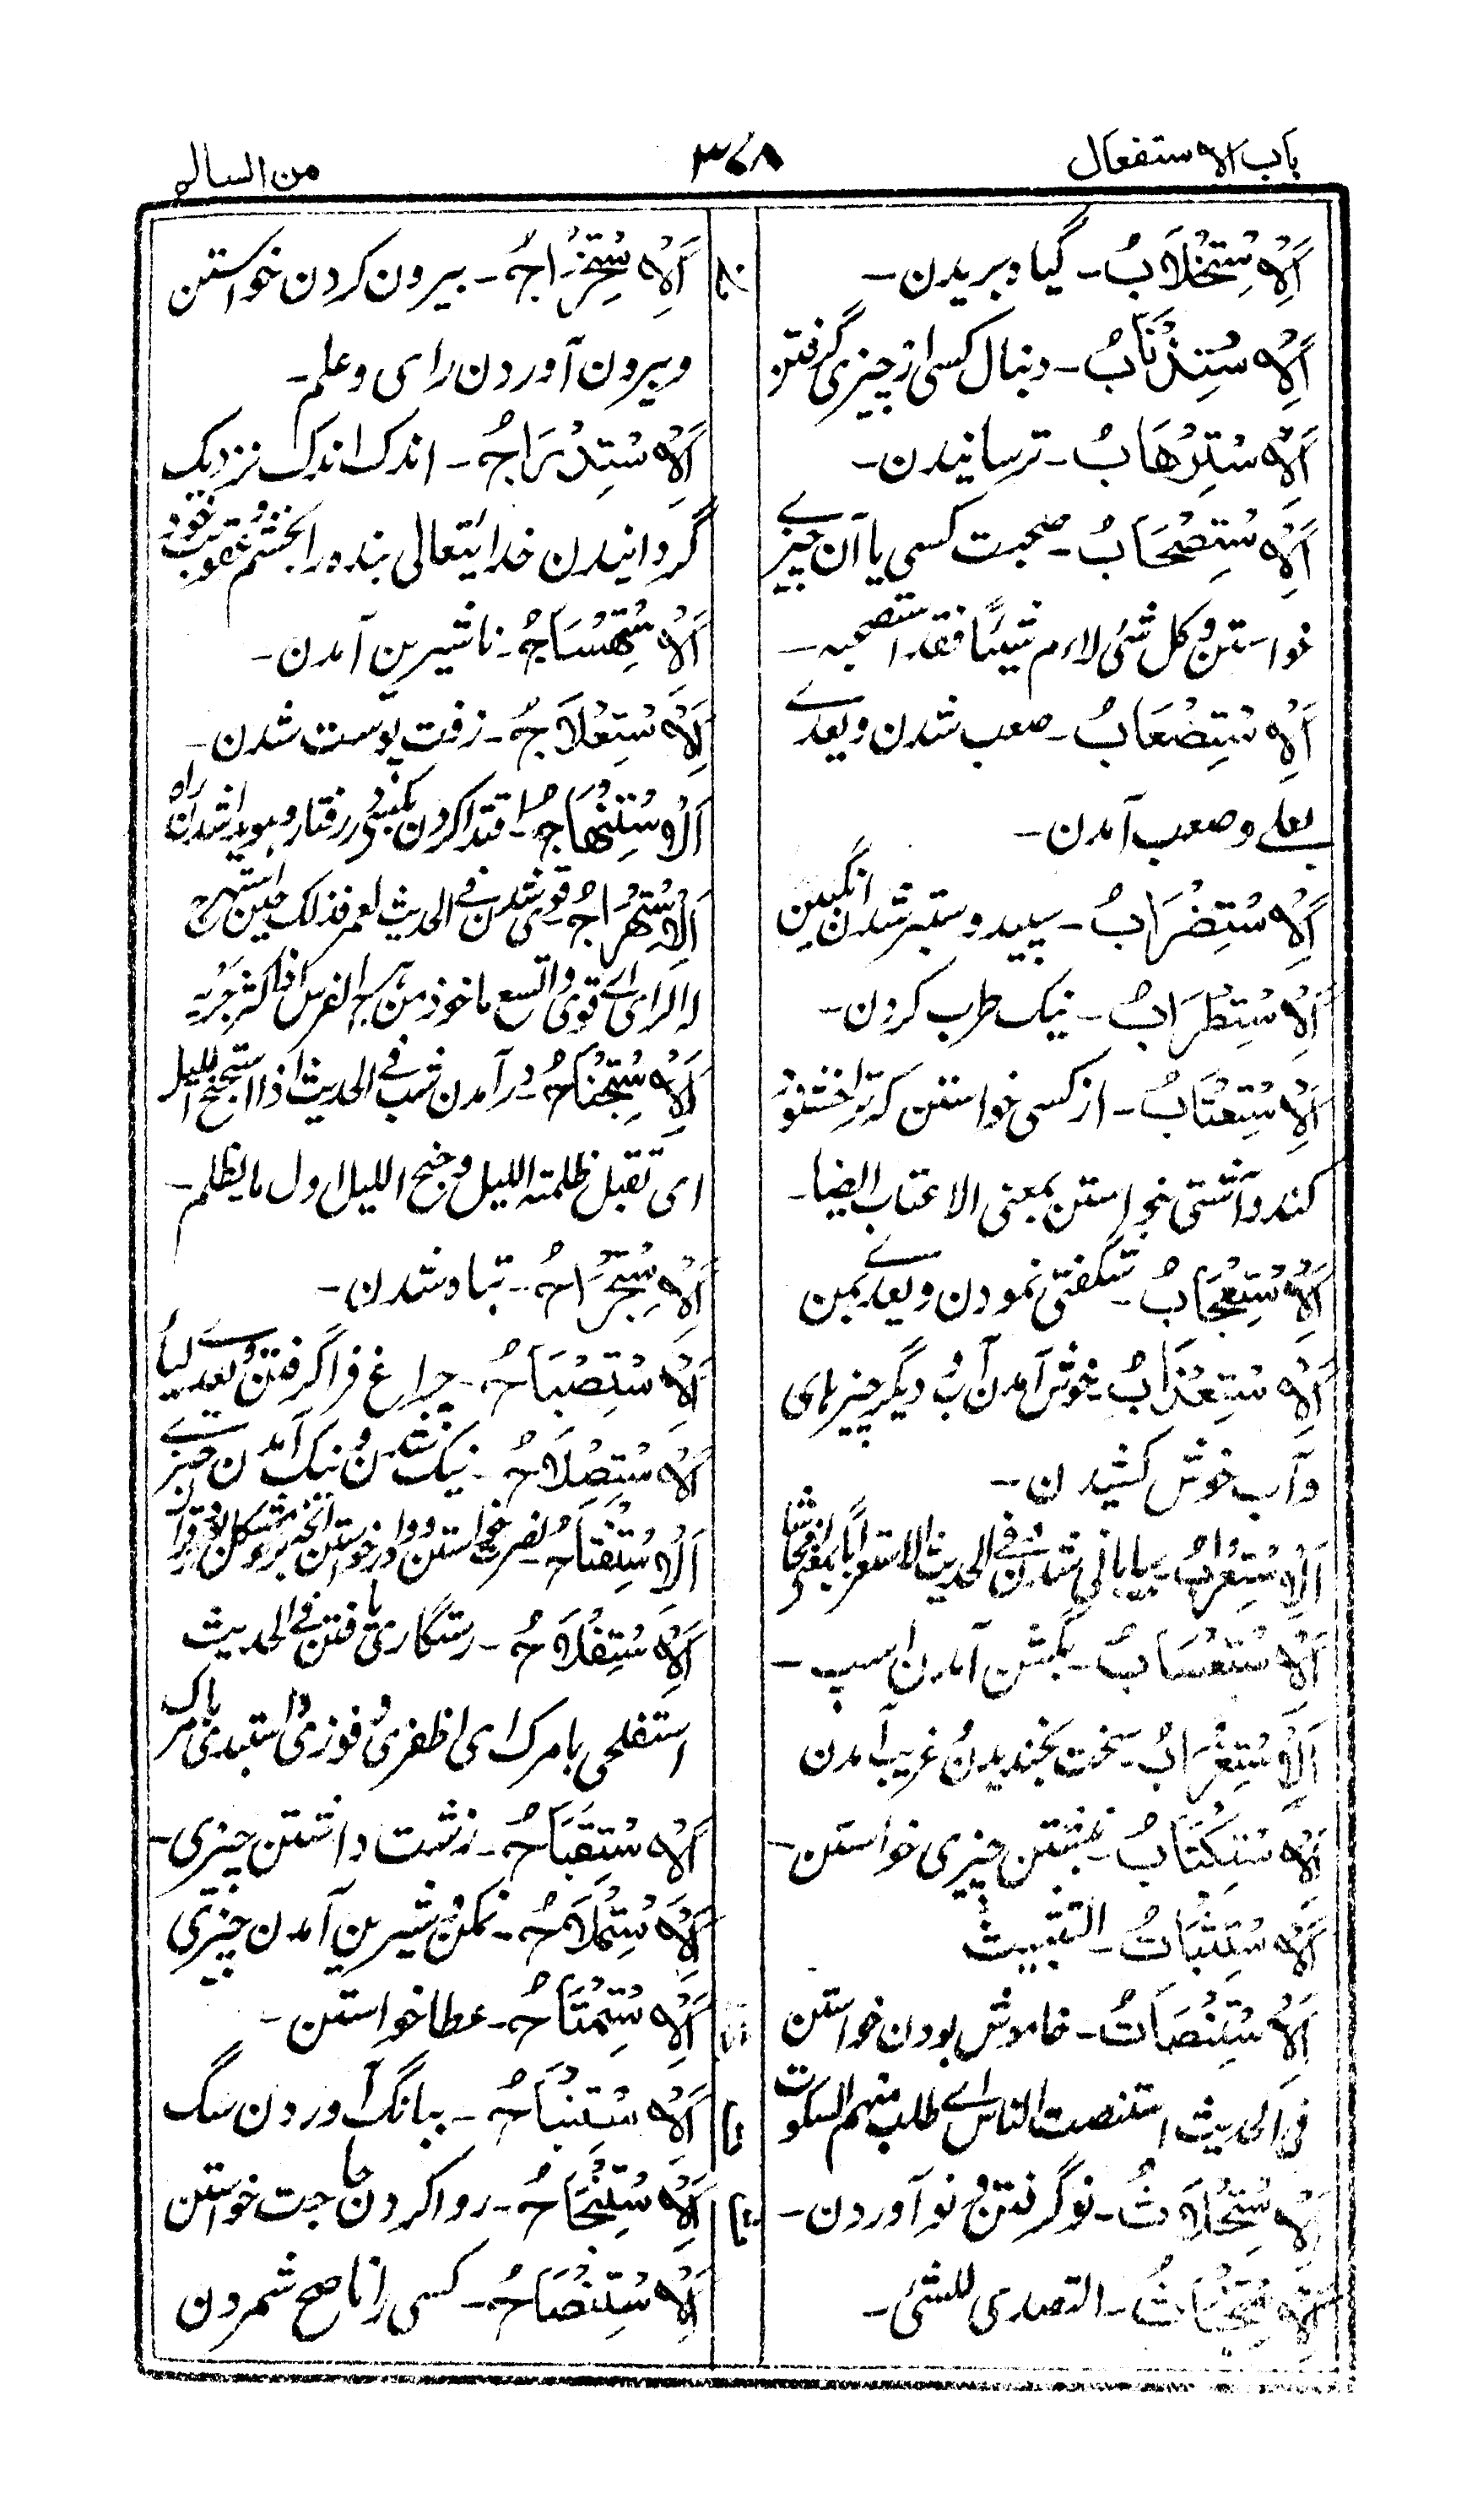 باب الاستفعال
۳۶۸
من السالم
اَلْاِسْتِخْلَابُ ـ گیاه بریدن ـ
اَلْاِسْتِذْنَابُ ـ دنبال کسی از چیزی گرفتن
اَلْاِسْتِرْهَابُ ـ ترسانیدن ـ
اَلْاِسْتِصْحَابُ ـ صحبت کسی یا آن چیزے
خواستن و کل شئ لاءم شیئاً فقد استصحبه ـ
اَلْاِسْتِصْعَابُ ـ صعب شدن و یعدے
بعلے و صعب آمدن ـ
اَلْاِسْتِضْرَابُ ـ سپید و ستبر شدن انگبین
اَلْاِسْتِطْرَابُ ـ نیک طرب کردن ـ
اَلْاِسْتِعْتَابُ ـ از کسی خواستن که ترا خشنود
کند و آشتی خواستن بمعنی الاعتاب ایضا ـ
اَلْاِسْتِعْجَابُ ـ شگفتی نمودن و یعدے بمن
اَلْاِسْتِعْذَابُ ـ خوش آمدن آب و دیگر چیزهای
و آب خوش کشیدن ـ
اَلْاِسْتِعْرَابُ ـ بیابانی شدن و فے الحدیث الاستعراب
اَلْاِسْتِعْسَابُ ـ بگشن آمدن اسپ ـ
اَلْاِسْتِغْرَابُ ـ سخت بخندیدن و غریب آمدن
اَلْاِسْتِكْتَابُ ـ نبشتن چیزی خواستن ـ
اَلْاِسْتِثْبَاتُ ـ التثبیت
اَلْاِسْتِنْصَاتُ ـ خاموش بودن خواستن
فی الحدیث استنصت الناس اے طلب منهم السکوت
اَلْاِسْتِحْدَاثُ ـ نو گرفتن و نو آوردن ـ
ـ التصدی للشئ ـ
اَلْاِسْتِخْرَاجُ ـ بیرون کردن خواستن
و بیرون آوردن رای و علم ـ
اَلْاِسْتِدْرَاجُ ـ اندک اندک نزدیک
گردانیدن خدایتعالی بنده را بخشم و عقوبت خود
اَلْاِسْتِسْمَاجُ ـ ناشیرین آمدن ـ
اَلْاِسْتِعْلَاجُ ـ زفت پوست شدن ـ
اَلْاِسْتِنْهَاجُ ـ اقتدا کردن بکسی در رفتار و هویدا شدن راه
قوی شدن فے الحدیث لعمر فذلک حین استهرج
له الرای اے قوی و اتسع ماخوذ من هرج الفرس اذا کثر جریه
اَلْاِسْتِجْنَاحُ ـ درآمدن شب فے الحدیث اذا استجنح اللیل
ای تقبل ظلمته اللیل و جنح اللیل اول ما یظلم ـ
اَلْاِسْتِجْرَاحُ ـ تباه شدن ـ
اَلْاِسْتِصْبَاحُ ـ چراغ فراگرفتن و یعدے
اَلْاِسْتِصْلَاحُ ـ نیک شدن و نیک آمدن چیزے
اَلْاِسْتِفْتَاحُ ـ نصرت خواستن و
اَلْاِسْتِفْلَاحُ ـ رستگاری یافتن فے الحدیث
استفلحی بامرک ای اظفری و فوزی و استبدی بامرک
اَلْاِسْتِقْبَاحُ ـ زشت داشتن چیزی ـ
اَلْاِسْتِمْلَاحُ ـ نمکین و شیرین آمدن چیزی
اَلْاِسْتِمْتَاحُ ـ عطا خواستن ـ
اَلْاِسْتِنْبَاحُ ـ ببانگ آوردن سگ
اَلْاِسْتِنْجَاحُ ـ روا کردن حاجت خواستن
اَلْاِسْتِنْصَاحُ ـ کسی را ناصح شمردن